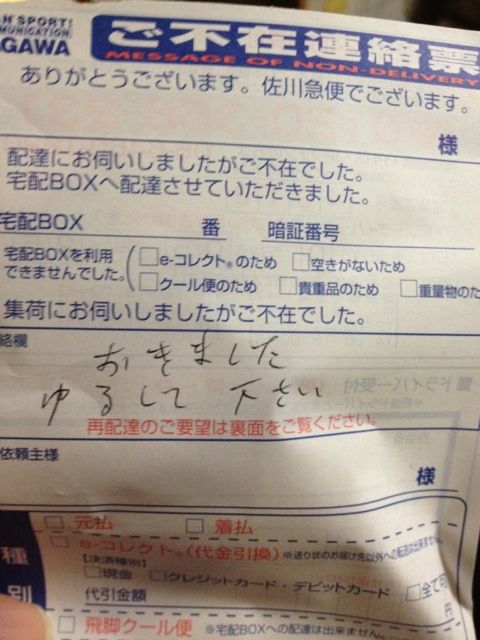 SPORT!
GAWA
ご不在連絡票
MESSAGE OF NON-DELIVERY
ありがとうございます。佐川急便でございます。
様
配達にお伺いしましたがご不在でした。
宅配BOXへ配達させていただきました。
宅配BOX 番 暗証番号
宅配BOXを利用できませんでした。
□e-コレクト®のため □空きがないため
□クール便のため □貴重品のため □重量物のた
集荷にお伺いしましたがご不在でした。
絡欄
おきました
ゆるして下さい
再配達のご要望は裏面をご覧ください。
依頼主様
様
種別
□ 元払 □ 着払
□ e-コレクト®(代金引換)
【決済種別】
□現金 □クレジットカード・デビットカード □全て可
代引金額 円
□ 飛脚クール便 ※宅配BOXへの配達は出来ません